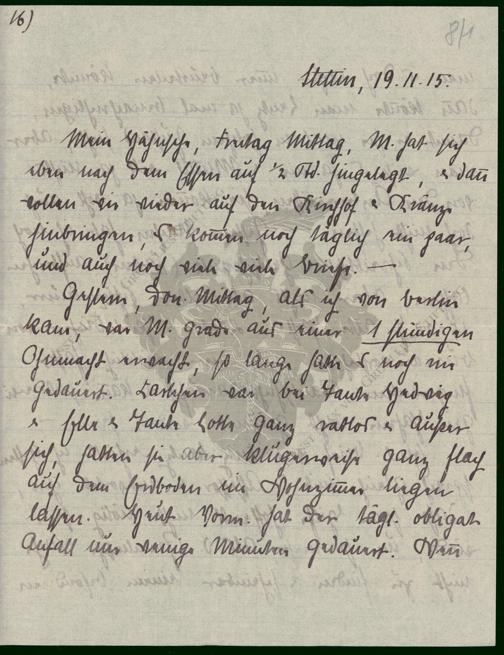 16)
8/1
Stettin, 19.11.15.
Mein Hänschen, Freitag Mittag, M. hat sich
eben nach dem Essen auf ½ Std. hingelegt, & dann
wollen wir wieder auf den Kirchhof & Kränze
hinbringen, es kommen noch täglich ein paar,
und auch noch viele viele Briefe. —
Gestern, Don. Mittag, als ich von Berlin
kam, war M. grade aus einer 1 stündigen
Ohnmacht erwacht, so lange hatte es noch nie
gedauert. Karlchen war bei Tante Hedwig
& Elle & Tante Lotte ganz ratlos & außer
sich, hatten sie aber klugerweise ganz flach
auf dem Erdboden im Wohnzimmer liegen
lassen. Heut Vorm. hat der tägl. obligate
Anfall nur wenige Minuten gedauert. Wenn